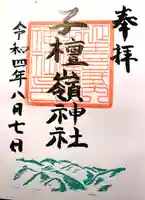 奉拝
子檀嶺神社
令和四年八月七日